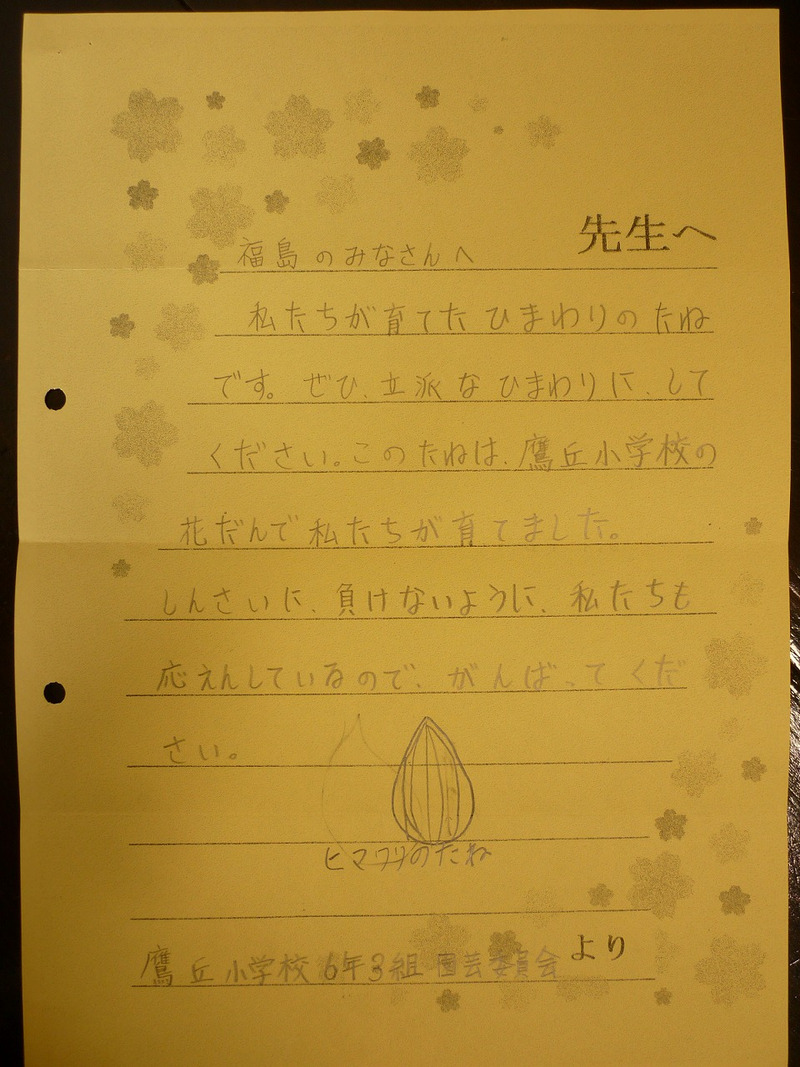 先生へ
福島のみなさんへ
私たちが育てたひまわりのたね
です。ぜひ、立派なひまわりに、して
ください。このたねは、鷹丘小学校の
花だんで私たちが育てました。
しんさいに、負けないように、私たちも
応えんしているので、がんばってくだ
さい。
ヒマワリのたね
鷹丘小学校6年3組園芸委員会より